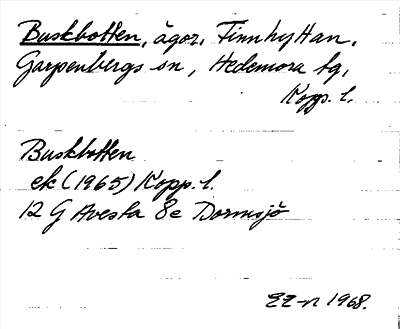 Buskbotten, ägor, Finnhyttan,
Garpenbergs sn, Hedemora tg,
Kopp. l.
Buskbotten
ek (1965) Kopp. l.
12 G Avesta 8e Dormsjö
EE-n 1968.